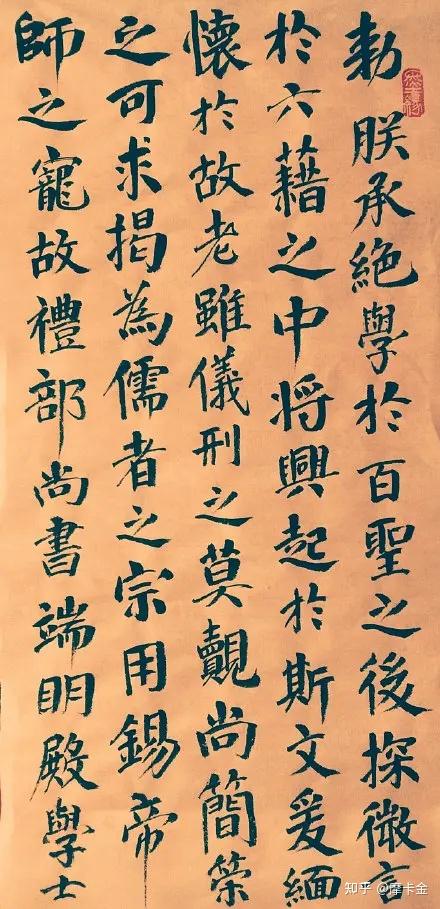 勅朕承絶學於百聖之後探微言
於六藉之中将興起於斯文爰緬
懷於故老雖儀刑之莫覿尚簡策
之可求揭為儒者之宗用錫帝
師之寵故禮部尚書端明殿學士
知乎 @摩卡金